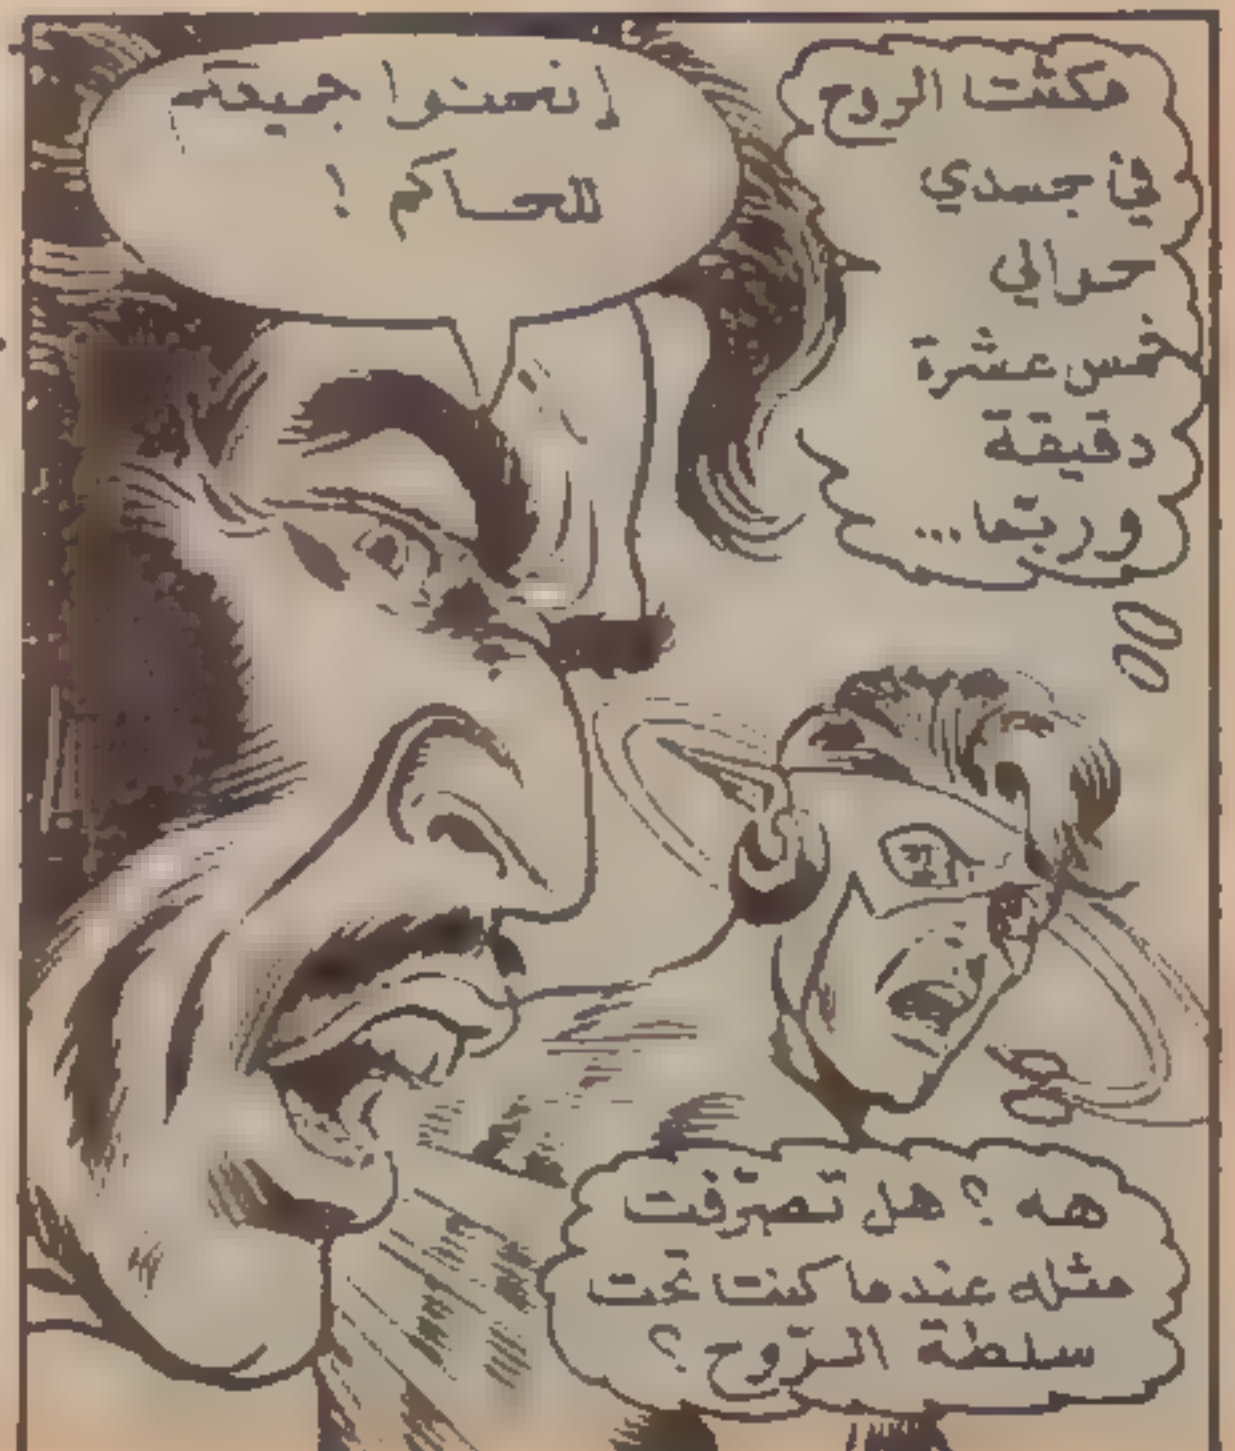 مكثت الروح
في جسدي
حوالي
خمس عشرة
دقيقة
وربّما...
إنحنوا جميعكم
للحاكم !
هه ؟ هل تصرّفت
مثله عندما كنت تحت
سلطة الرّوح ؟